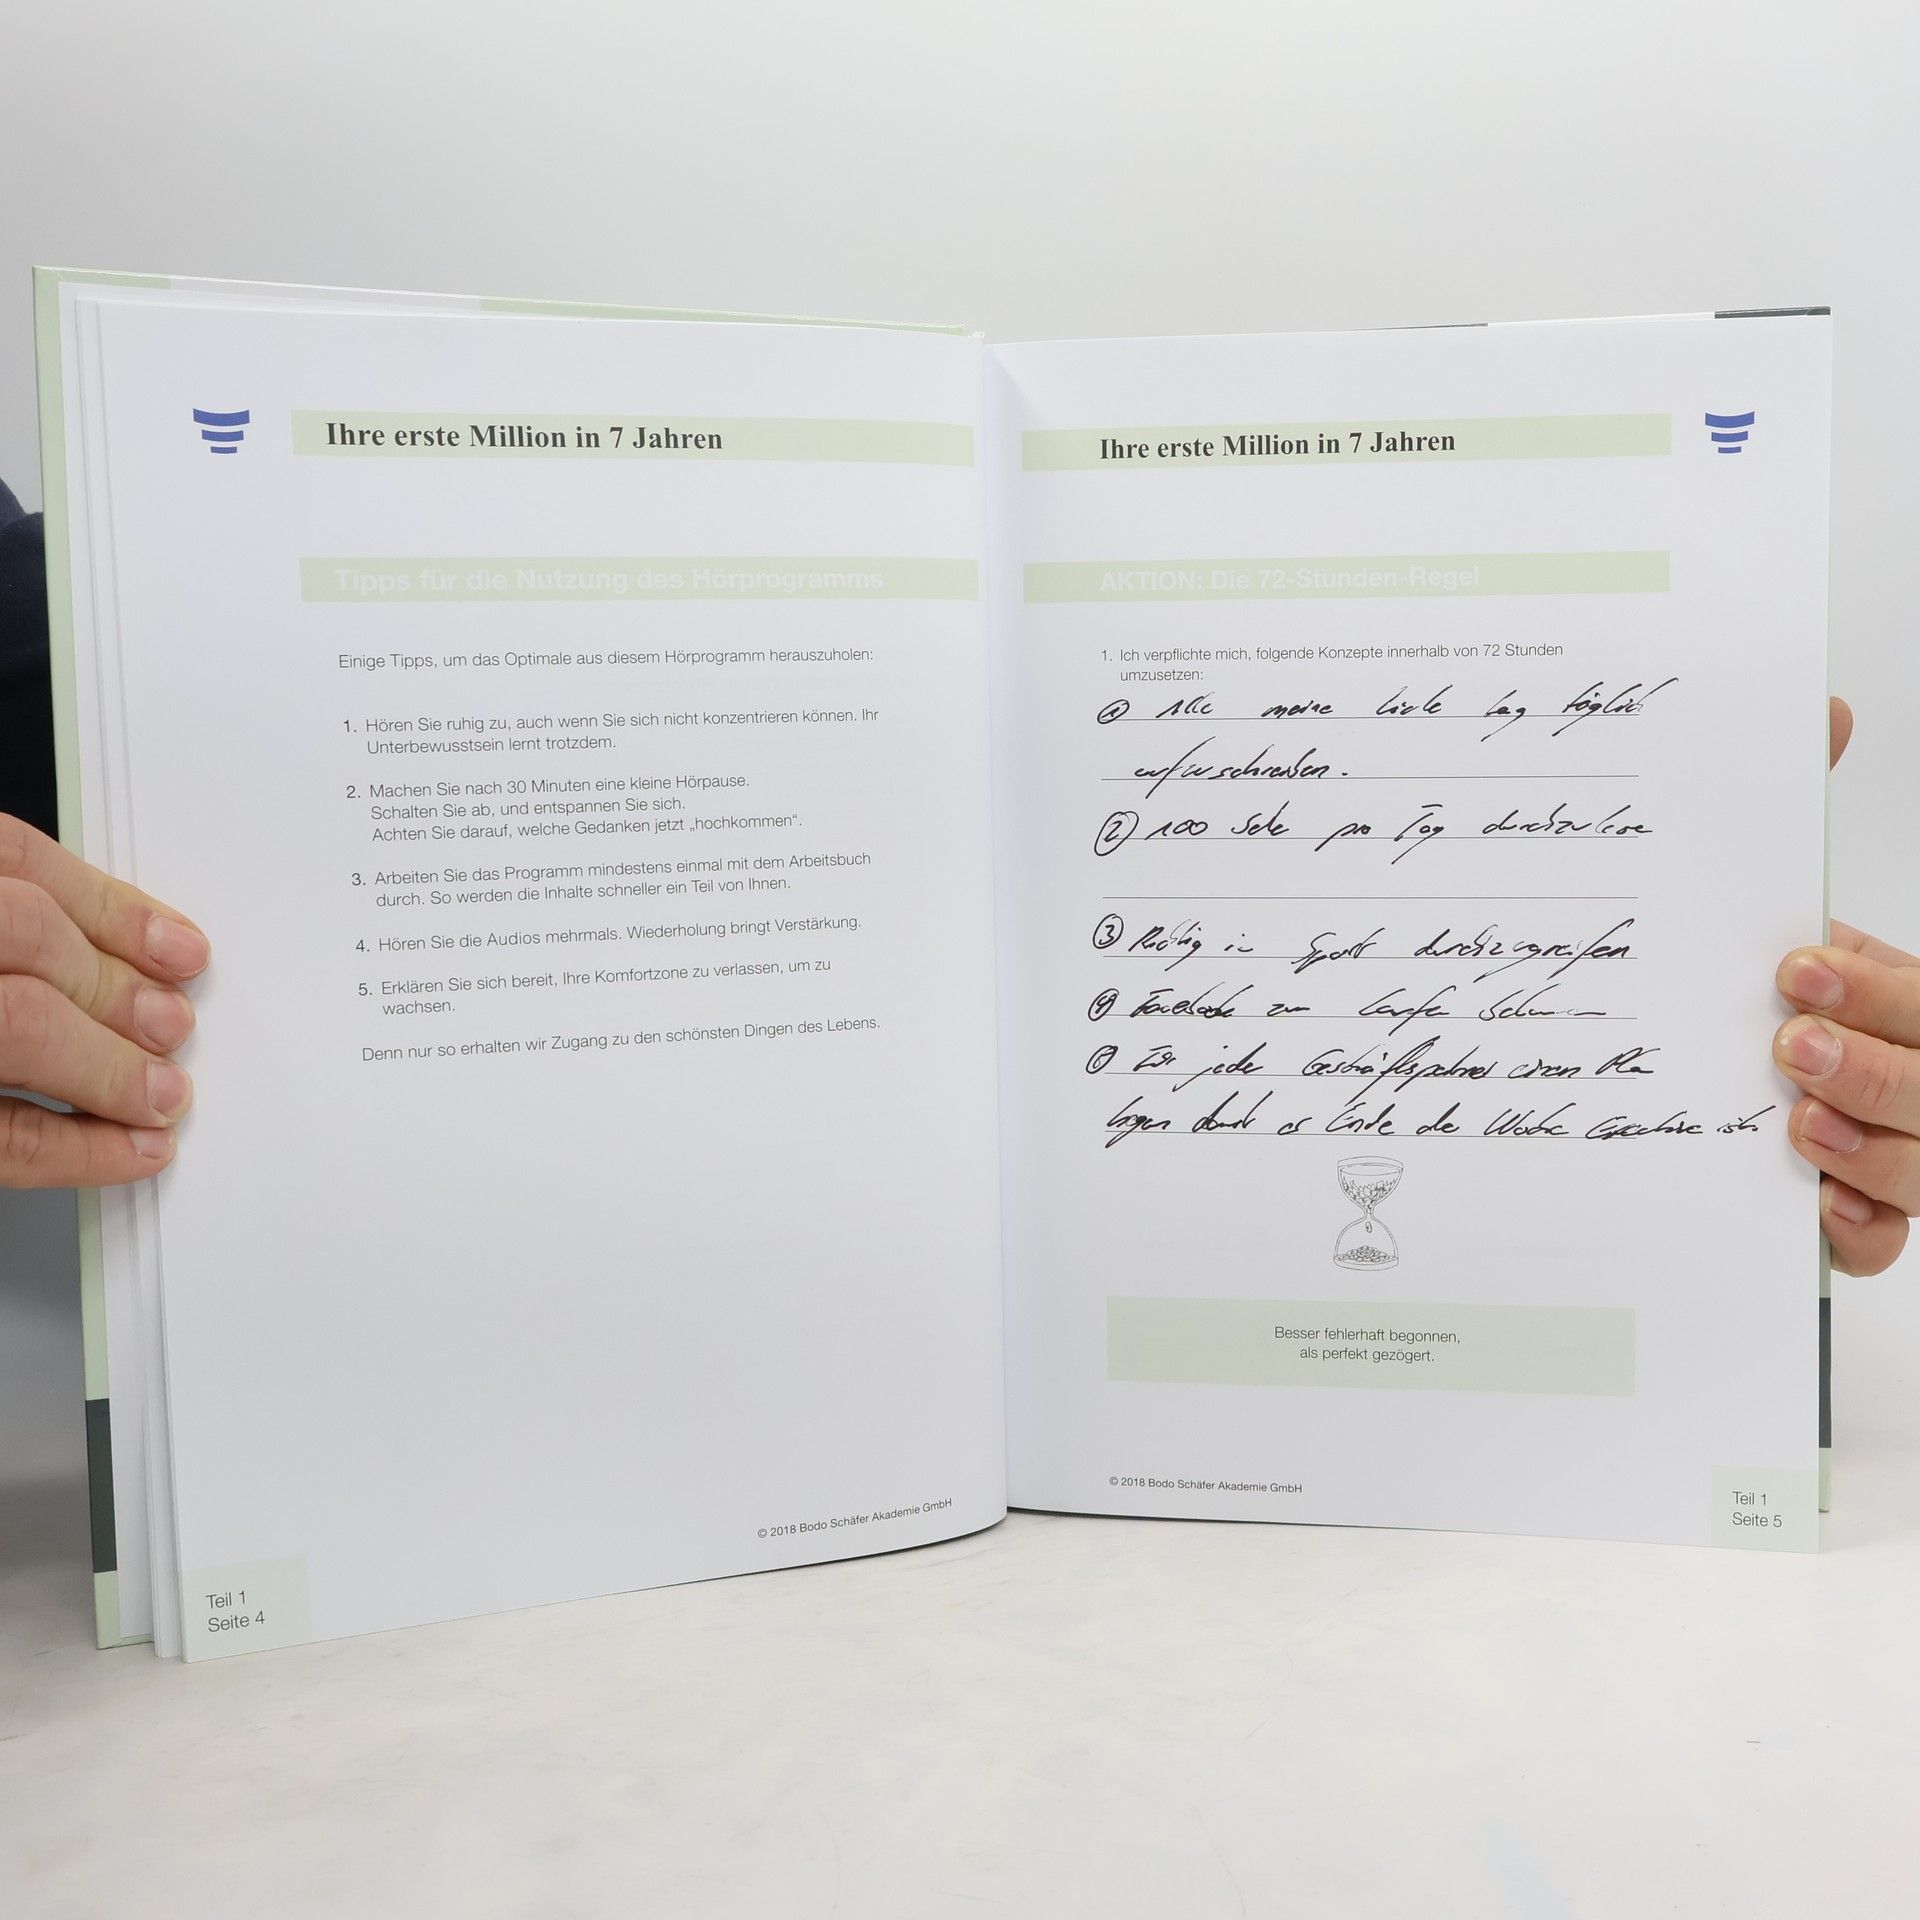 Ihre erste Million in 7 Jahren
Tipps für die Nutzung des Hörprogramms
Einige Tipps, um das Optimale aus diesem Hörprogramm herauszuholen:
1. Hören Sie ruhig zu, auch wenn Sie sich nicht konzentrieren können. Ihr
Unterbewusstsein lernt trotzdem.
2. Machen Sie nach 30 Minuten eine kleine Hörpause.
Schalten Sie ab, und entspannen Sie sich.
Achten Sie darauf, welche Gedanken jetzt „hochkommen“.
3. Arbeiten Sie das Programm mindestens einmal mit dem Arbeitsbuch
durch. So werden die Inhalte schneller ein Teil von Ihnen.
4. Hören Sie die Audios mehrmals. Wiederholung bringt Verstärkung.
5. Erklären Sie sich bereit, Ihre Komfortzone zu verlassen, um zu
wachsen.
Denn nur so erhalten wir Zugang zu den schönsten Dingen des Lebens.
© 2018 Bodo Schäfer Akademie GmbH
Teil 1
Seite 4
Ihre erste Million in 7 Jahren
AKTION: Die 72-Stunden-Regel
1. Ich verpflichte mich, folgende Konzepte innerhalb von 72 Stunden
umzusetzen:
① Alle meine täglich
aufzuschreiben.
② 100 pro Tag durchzulesen
③ Richtig in Sport durchzugreifen
④ Facebook zum laufen
⑤ Für jeden Geschäftspartner einen Plan
damit er Ende der Woche ist.
Besser fehlerhaft begonnen,
als perfekt gezögert.
© 2018 Bodo Schäfer Akademie GmbH
Teil 1
Seite 5